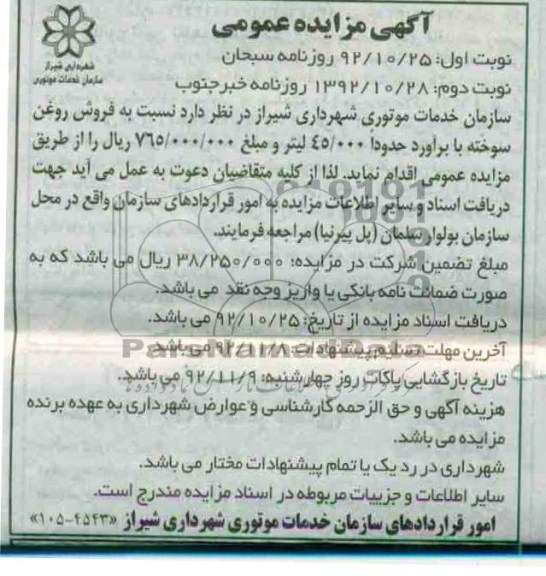 آگهی مزایده عمومی
شهرداری شیراز
سازمان خدمات موتوری
نوبت اول: ۹۲/۱۰/۲۵ روزنامه سبحان
نوبت دوم: ۱۳۹۲/۱۰/۲۸ روزنامه خبرجنوب
سازمان خدمات موتوری شهرداری شیراز در نظر دارد نسبت به فروش روغن
سوخته با برآورد حدودا ۴۵/۰۰۰ لیتر و مبلغ ۷۶۵/۰۰۰/۰۰۰ ریال را از طریق
مزایده عمومی اقدام نماید. لذا از کلیه متقاضیان دعوت به عمل می آید جهت
دریافت اسناد و سایر اطلاعات مزایده به امور قراردادهای سازمان واقع در محل
سازمان بولوار سلمان (پل پیرنیا) مراجعه فرمایند.
مبلغ تضمین شرکت در مزایده: ۳۸/۲۵۰/۰۰۰ ریال می باشد که به
صورت ضمانت نامه بانکی یا واریز وجه نقد می باشد.
دریافت اسناد مزایده از تاریخ: ۹۲/۱۰/۲۵ می باشد.
آخرین مهلت تسلیم پیشنهادات: ۹۲/۱۱/۸ می باشد
تاریخ بازگشایی پاکات روز چهارشنبه: ۹۲/۱۱/۹ می باشد.
هزینه آگهی و حق الزحمه کارشناسی و عوارض شهرداری به عهده برنده
مزایده می باشد.
شهرداری در رد یک یا تمام پیشنهادات مختار می باشد.
سایر اطلاعات و جزییات مربوطه در اسناد مزایده مندرج است.
امور قراردادهای سازمان خدمات موتوری شهرداری شیراز «۴۵۴۳-۱۰۵»
ParsNamadData